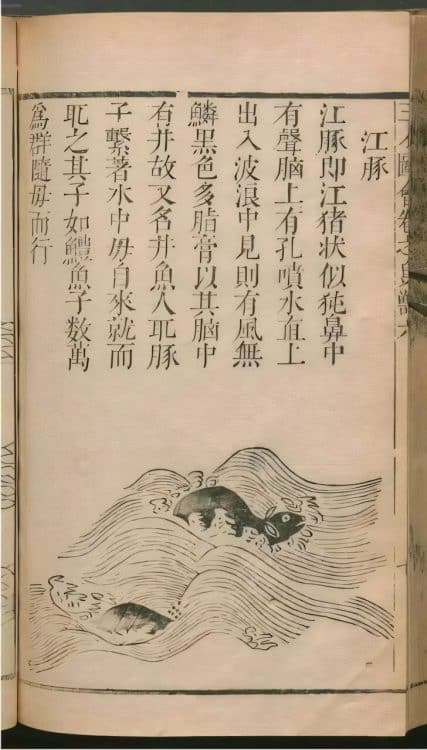 江豚
江豚即江猪状似㹠鼻中
有聲腦上有孔噴水直上
出入波浪中見則有風無
鱗黑色多脂膏以其腦中
有井故又名井魚人取豚
子繫著水中母自來就而
取之其子如鱧魚子数萬
為群隨母而行